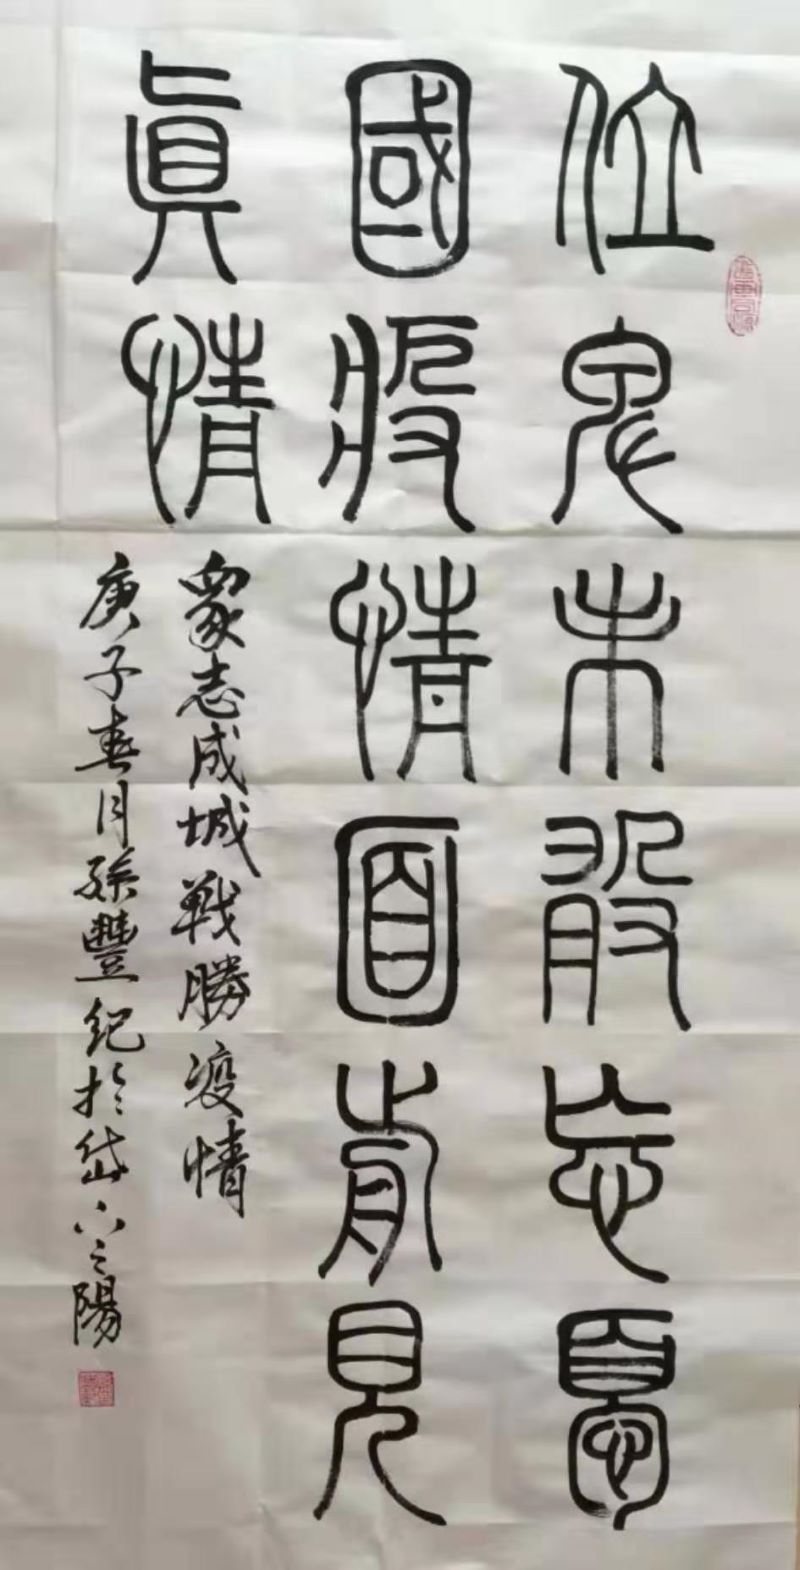 位卑未敢忘憂
國疫情面前見
眞情
衆志成城戰勝疫情
庚子春月孫豐紀於岱下之陽